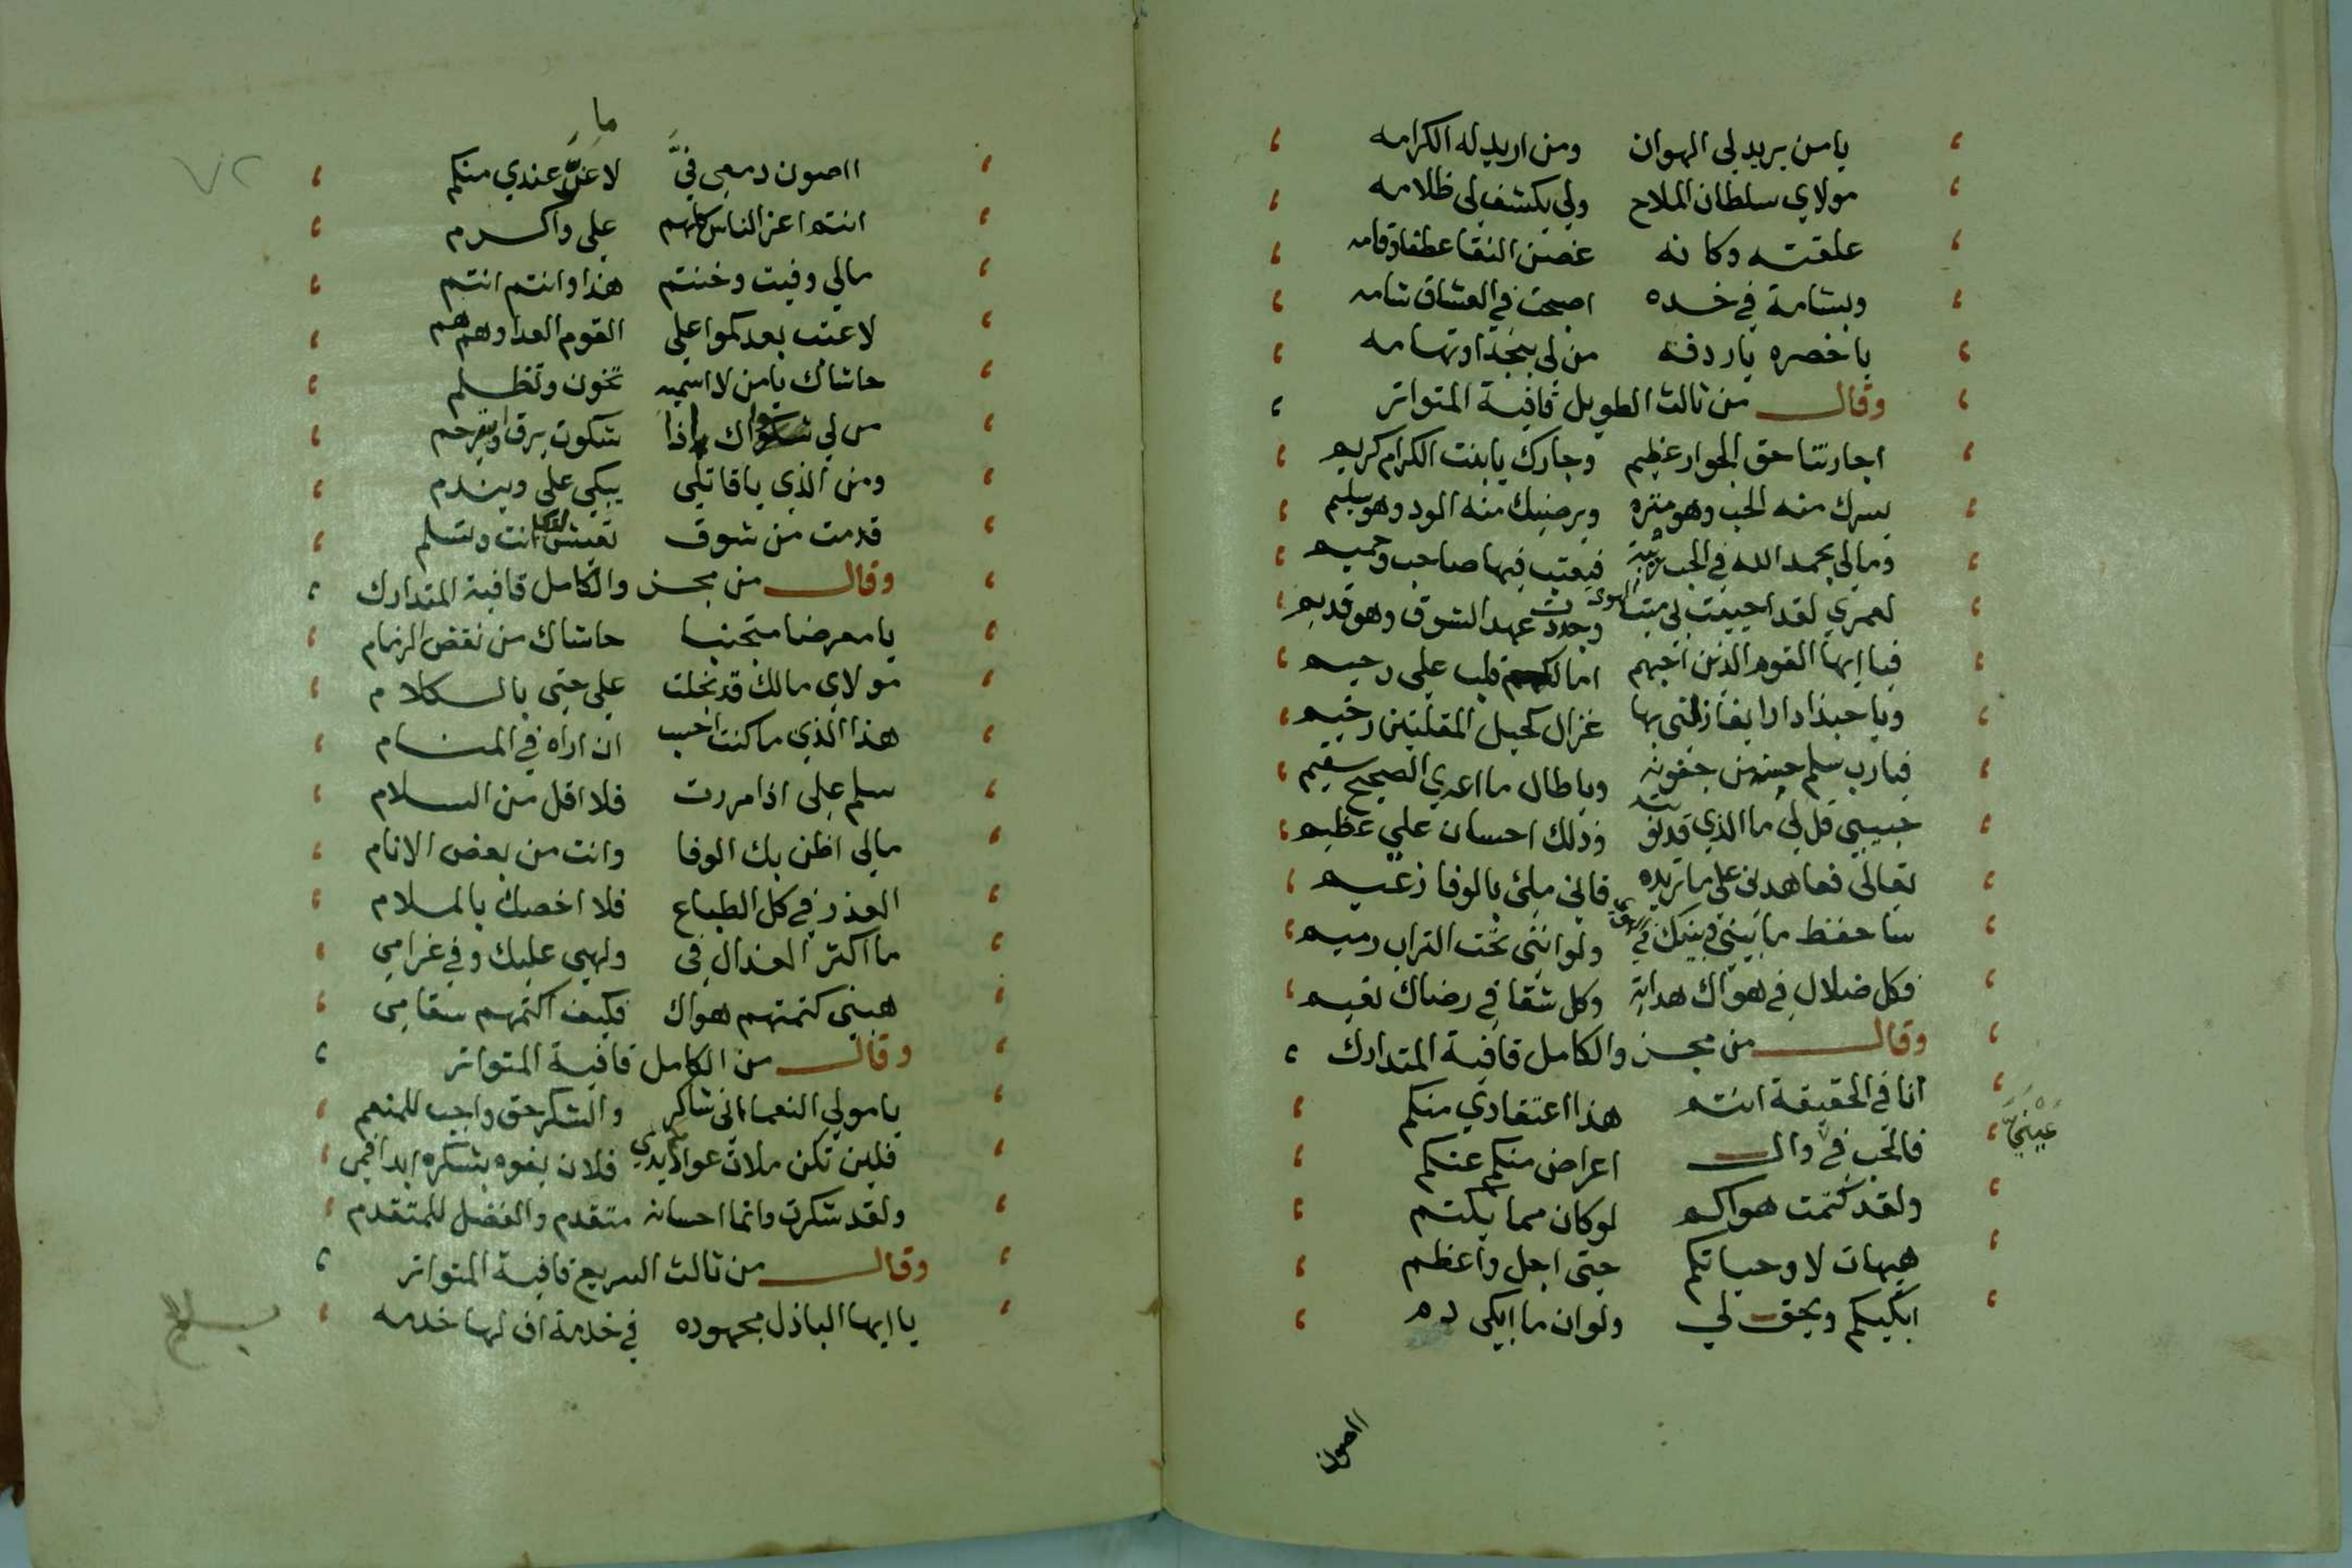 يامن يريد لي الهوان ومن اريد له الكرامه
مولاي سلطان الملاح ولي يكشف لي ظلامه
علقته وكانه غصن النقا عطفا وقامه
وبشامة في خده اصبحت في العشاق شامه
يا خصره ياردفه من لي بنجد او تهامه
وقال من ثالث الطويل قافية المتواتر
اجارتنا حق الجوار عظيم وجارك يا بنت الكرام كريم
يسرك منه الحب وهو منزه ويرضيك منه الود وهو سليم
ومالي بحمد الله في الحب ريبة فيعتب فيها صاحب وحميم
لعمري لقد احييت لي ميت الهوى وجددت عهد الشوق وهو قديم
فيا ايها القوم الذين احبهم امالكم قلب علي رحيم
ويا حبذا دارا يغازلني بها غزال كحيل المقلتين رخيم
فيارب سلم حبه من جفونه وياطال ما اعدي الصحيح سقيم
حبيبي قل لي ما الذي قد وذلك احسان علي عظيم
تعالى فعاهدني على ما تريده فاني ملئ بالوفا زعيم
ساحفظ ما بيني وبينك في ولو انني تحت التراب رميم
فكل ضلال في هواك هداية وكل شقا في رضاك نعيم
وقال من مجزو الكامل قافية المتدارك
انا في الحقيقة انتم هذا اعتقادي منكم
فالحب في وال اعراض منكم عنكم
عيني
ولقد كتمت هواكم لو كان مما يكتم
هيهات لا وحياتكم حتى اجل واعظم
ابكيكم ويحق لي ولو ان ما ابكي دم
ااصون
ما
٧٢
ااصون دمعي في لا عز عندي منكم
انتم اعز الناس كلهم علي واكرم
مالي وفيت وخنتم هذا وانتم انتم
لا عتب بعدكموا على القوم العدا وهم هم
حاشاك يا من لا اسميه تخون وتظلم
من لي سواك اذا شكوت يرق او يترحم
ومن الذي يا قاتلي يبكي علي ويندم
قدمت من شوق تعيش انت وتسلم
وقال من مجزو الكامل قافية المتدارك
يا معرضا متجنبا حاشاك من نقض الزمام
مولاي مالك قد بخلت علي حتى بالكلام
هذا الذي ما كنت احسب ان اراه في المنام
سلم علي اذا مررت فلا اقل من السلام
مالي اظن بك الوفا وانت من بعض الانام
الغدر في كل الطباع فلا اخصك بالملام
ما اكثر العذال في ولهي عليك وفي غرامي
هبني كتمتهم هواك فكيف اكتمهم سقامي
وقال من الكامل قافية المتواتر
يا مولي النعما اني شاكر والشكر حق واجب للمنعم
فلين تكن ملات يدي فلان يفوه بشكره ابدا فمي
ولقد شكرت وانما احسانه متقدم والفضل للمتقدم
وقال من ثالث السريع قافية المتواتر
يا ايها الباذل مجهوده في خدمة اف لها خدمه